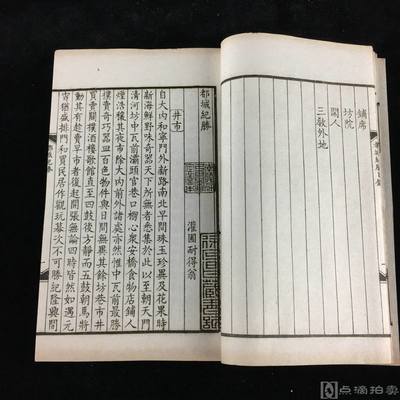 鋪席
坊院
閑人
三教外地
都城紀勝
灌圃耐得翁
井市
自大內和寧門外新路南北早間珠玉珍異及花果時
新海鮮野味奇器天下所無者悉集於此以至朝天門
清河坊中瓦前灞頭官巷口棚心衆安橋食物店鋪人
煙浩穰其夜市除大內前外諸處亦然惟中瓦前最勝
撲賣奇巧器皿百色物件與日間無異其餘坊巷市井
買賣關撲酒樓歌館直至四鼓後方靜而五鼓朝馬將
動其有趁賣早市者復起開張無論四時皆然如遇元
宵猶盛排門和買民居作觀玩幕次不可勝紀隆興間
点滴拍卖